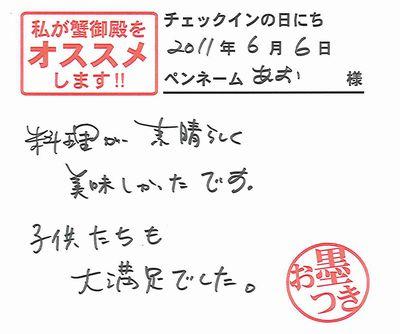 私が蟹御殿を
オススメ
します!!
チェックインの日にち
2011年6月6日
ペンネーム あお 様
料理が 素晴らしく
美味しかったです。
子供たちも
大満足でした。
お墨つき